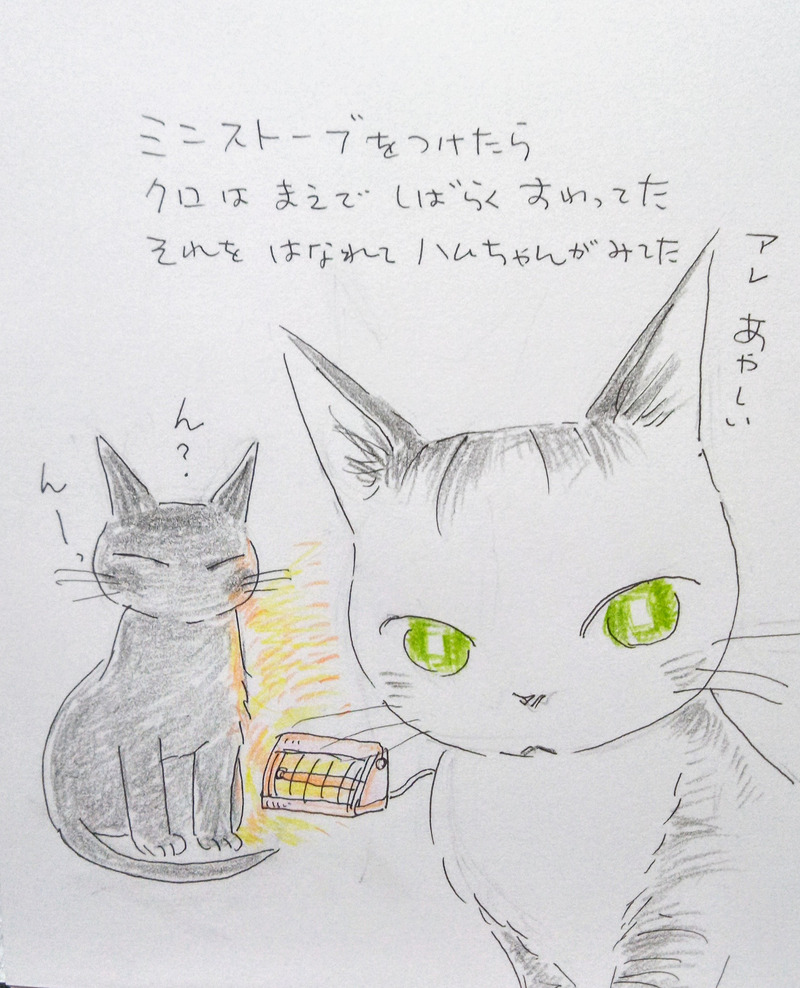 ミニストーブをつけたら
クロは まえで しばらく すわってた
それを はなれて ハムちゃんがみてた
アレ あやしい
ん?
んー、